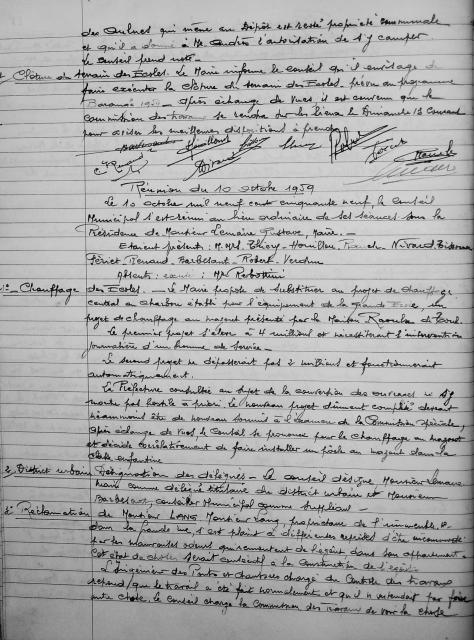 des Aulnes qui mène au Dépôt est resté propriété communale
et qu'il a donné à Mr. André l'autorisation de s'y camper
Le Conseil prend note -
Clôture du terrain des Ecoles. Le Maire informe le Conseil qu'il envisage de
faire exécuter la clôture du terrain des Ecoles, prévu au programme
1959 - Après échange de vues, il est convenu que la
commission des travaux se rendra sur les lieux le Dimanche 18 Courant
pour aviser les meilleures dispositions à prendre
Réunion du 10 octobre 1959
Le 10 octobre mil neuf cent cinquante neuf, le Conseil
Municipal s'est réuni au lieu ordinaire de ses séances sous la
Présidence de Monsieur Lemaire Gustave, Maire. -
Etaient présents : M.MM Thiéry - Houillon
Fériet Renard - Barbesant - Robert - Verdun
Absents : excusé : Mr
1°- Chauffage des Ecoles. - Le Maire propose de substituer au projet de chauffage
central au charbon établi pour l'équipement de la un
projet de chauffage au mazout présenté par la Maison de Toul.
Le premier projet s'élève à 4 millions et nécessiterait l'intervention
journalière d'un homme de service -
Le second projet ne dépasserait pas 2 millions et fonctionnerait
automatiquement.
La Préfecture consultée au sujet de la conversion des ouvrages ne s'y
montre pas hostile à priori. Le nouveau projet dûment complété devrait
néanmoins être de nouveau soumis à l'examen de la Commission Spéciale,
Après échange de vues, le Conseil se prononce pour le chauffage au mazout
et décide corrélativement de faire installer un poêle au mazout dans la
classe enfantine
2. District urbain Désignation des délégués - Le Conseil désigne Monsieur Lemaire
Maire comme délégué titulaire du district urbain et Monsieur
Barbesant, conseiller Municipal comme suppléant -
3° Réclamation de Monsieur LANG Monsieur Lang, propriétaire de l'immeuble
dans la Grande rue, s'est plaint à différentes reprises d'être incommodé
par les mauvaises odeurs qui remontent de l'égout dans son appartement -
Cet état de choses serait consécutif à la construction de l'égout
L'Ingénieur des Ponts et Chaussées chargé du Contrôle des travaux
répond que le travail a été fait normalement et qu'il n'entendait pas faire
autre chose. Le Conseil charge la Commission des Travaux de voir la chose